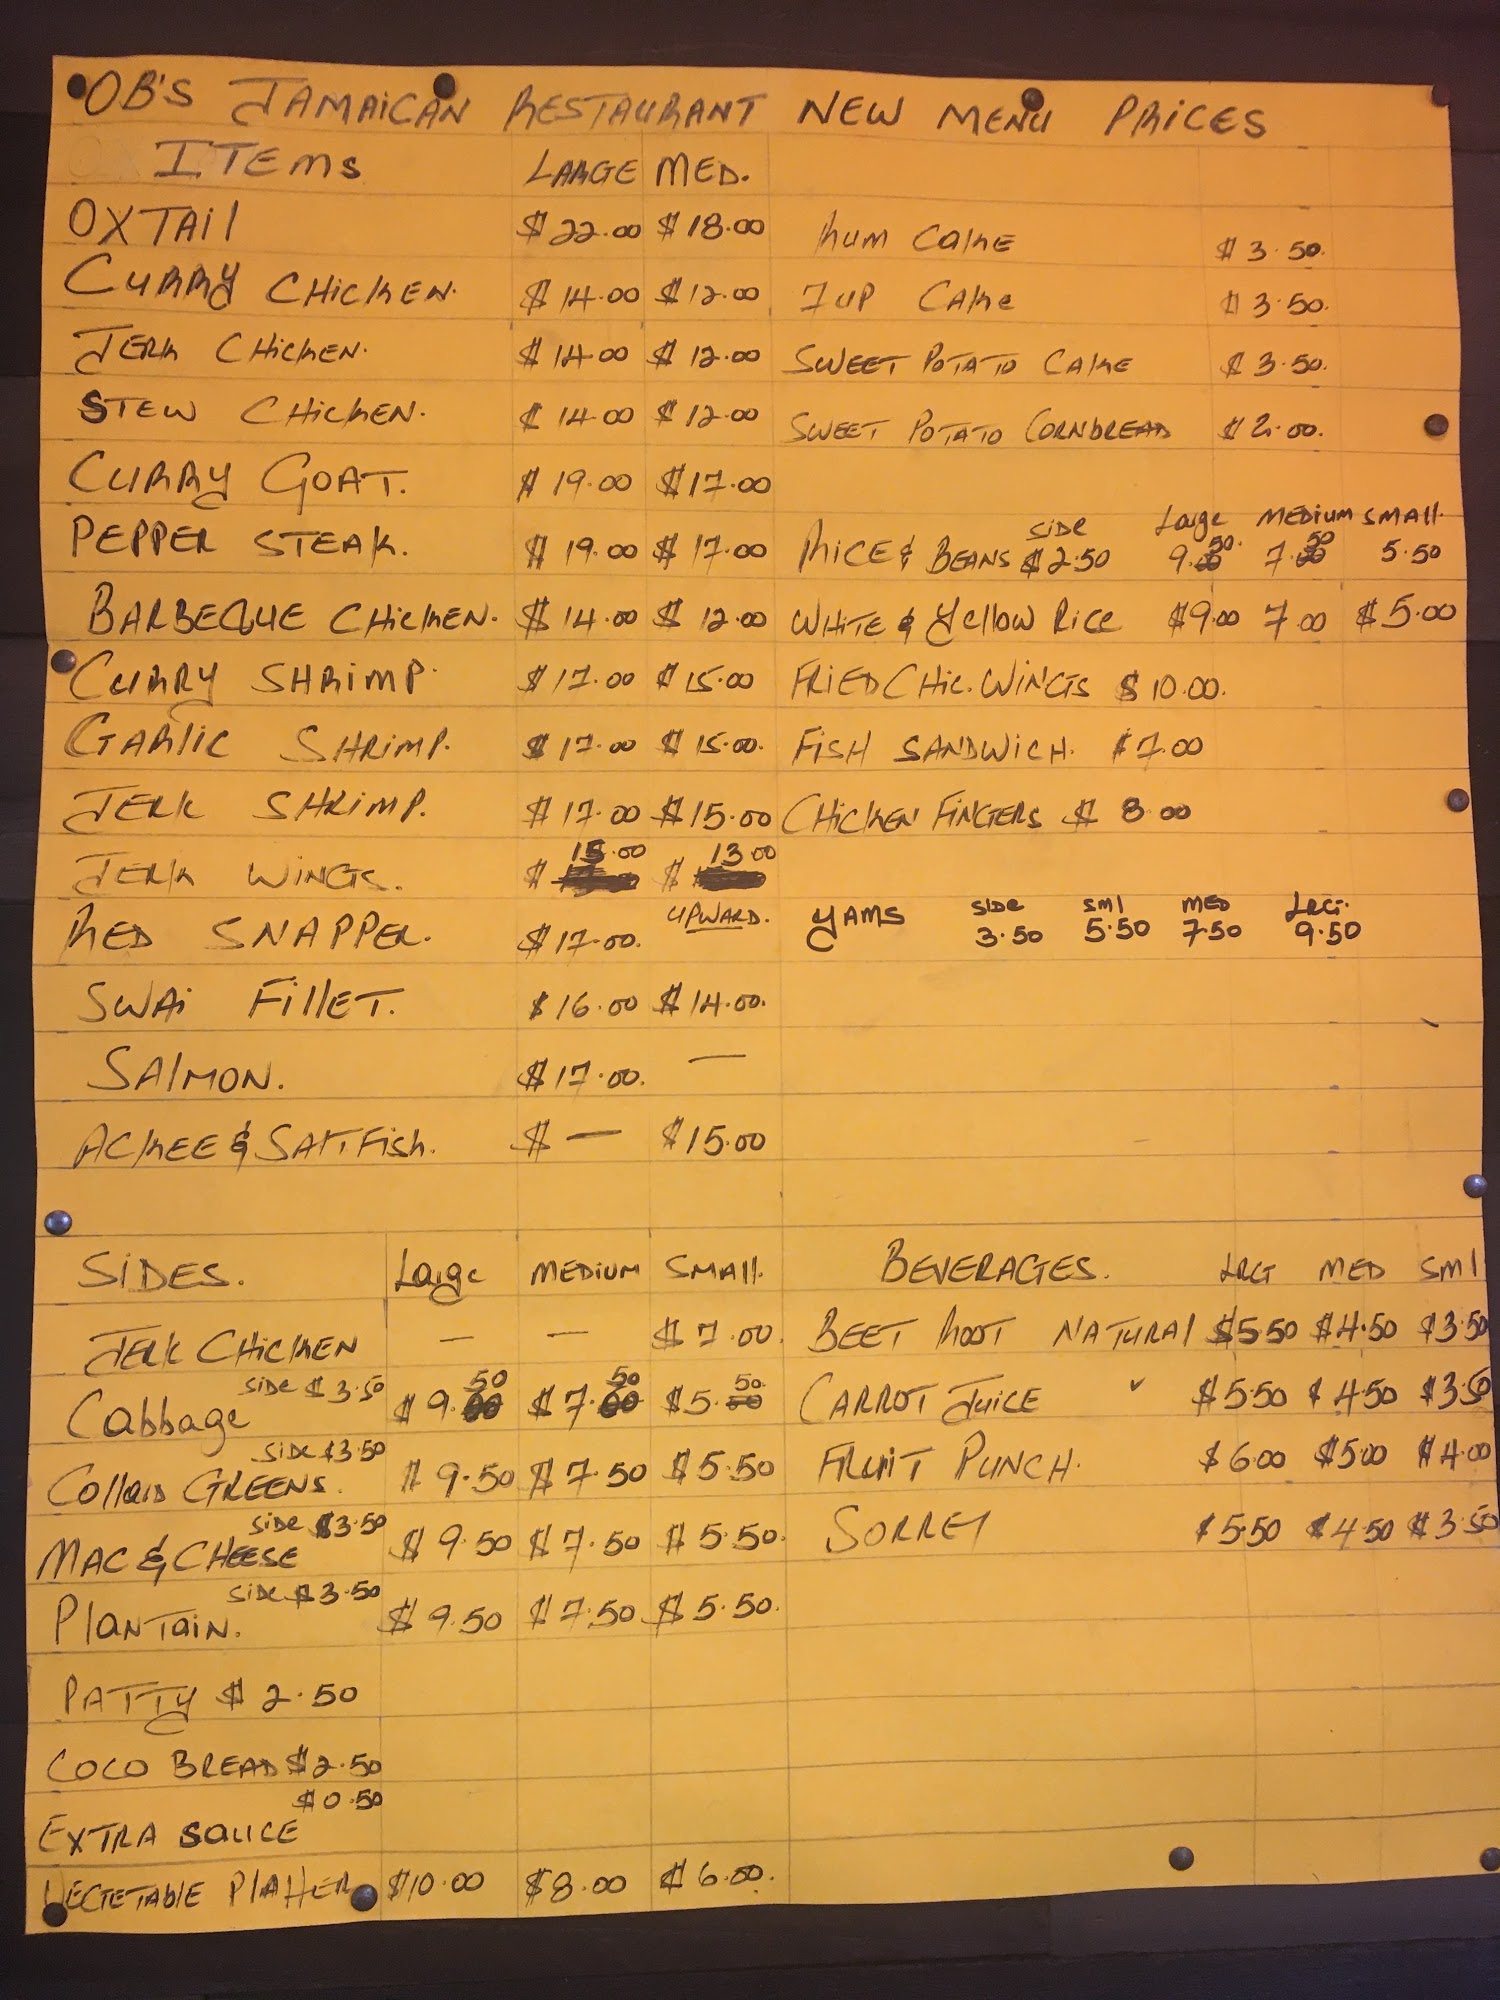 OB'S JAMAICAN RESTAURANT NEW MENU PRICES
ITEMS LARGE MED.
OXTAIL $22.00 $18.00
CURRY CHICKEN. $14.00 $12.00
JERK CHICKEN. $14.00 $12.00
STEW CHICKEN. $14.00 $12.00
CURRY GOAT. $19.00 $17.00
PEPPER STEAK. $19.00 $17.00
BARBEQUE CHICKEN. $14.00 $12.00
CURRY SHRIMP. $17.00 $15.00
GARLIC SHRIMP. $17.00 $15.00.
JERK SHRIMP. $17.00 $15.00
JERK WINGS. $15.00 $13.00
RED SNAPPER. $17.00. UPWARD.
SWAI FILLET. $16.00 $14.00.
SALMON. $17.00. —
ACKEE & SALTFISH. $ — $15.00
RUM CAKE $3.50.
7UP CAKE $3.50.
SWEET POTATO CAKE $3.50.
SWEET POTATO CORNBREAD $2.00.
SIDE Large MEDIUM SMALL.
RICE & BEANS $2.50 9.50. 7.50 5.50
WHITE & Yellow RICE $9.00 7.00 $5.00
FRIED CHIC. WINGS $10.00.
FISH SANDWICH. $7.00
CHICKEN FINGERS $8.00
SIDE SMl MED LRG.
YAMS 3.50 5.50 7.50 9.50
SIDES. Large MEDIUM SMALL.
JERK CHICKEN — — $7.00.
Cabbage SIDE $3.50 $9.50 $7.50 $5.50.
Collard GREENS. SIDE $3.50 $9.50 $7.50 $5.50
MAC & CHEESE SIDE $3.50 $9.50 $7.50 $5.50.
PlanTain. SIDE $3.50 $9.50 $7.50 $5.50.
PATTY $2.50
COCO BREAD $2.50
EXTRA SAUCE $0.50
VEGETABLE PlATTER $10.00 $8.00 $6.00.
BEVERAGES. LRG MED SMl
BEET ROOT NATURAL $5.50 $4.50 $3.50
CARROT JUICE $5.50 $4.50 $3.50
FRUIT PUNCH. $6.00 $5.00 $4.00
SORREL $5.50 $4.50 $3.50